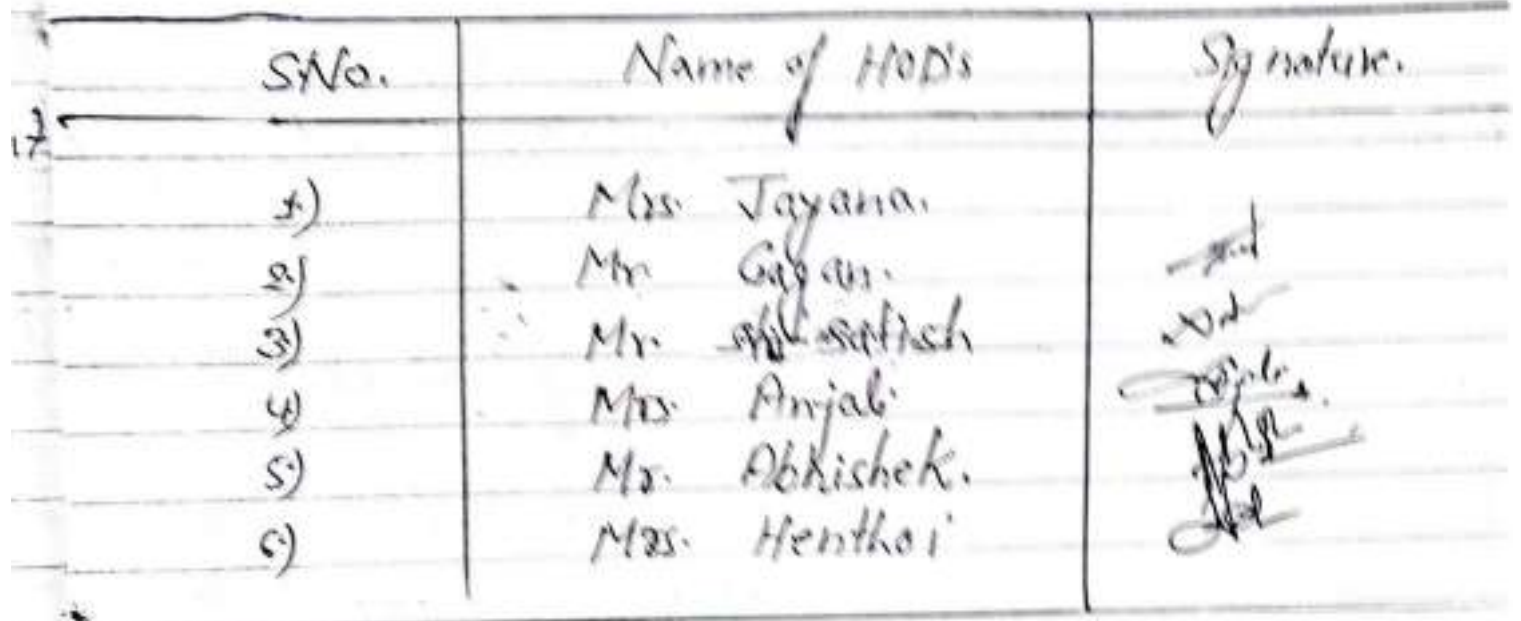 S.No. Name of HOD's Signature.
1) Mrs. Jayana.
2) Mr. Gagan.
3) Mr. satish
4) Mrs. Anjali
5) Mr. Abhishek.
6) Mrs. Henthoi